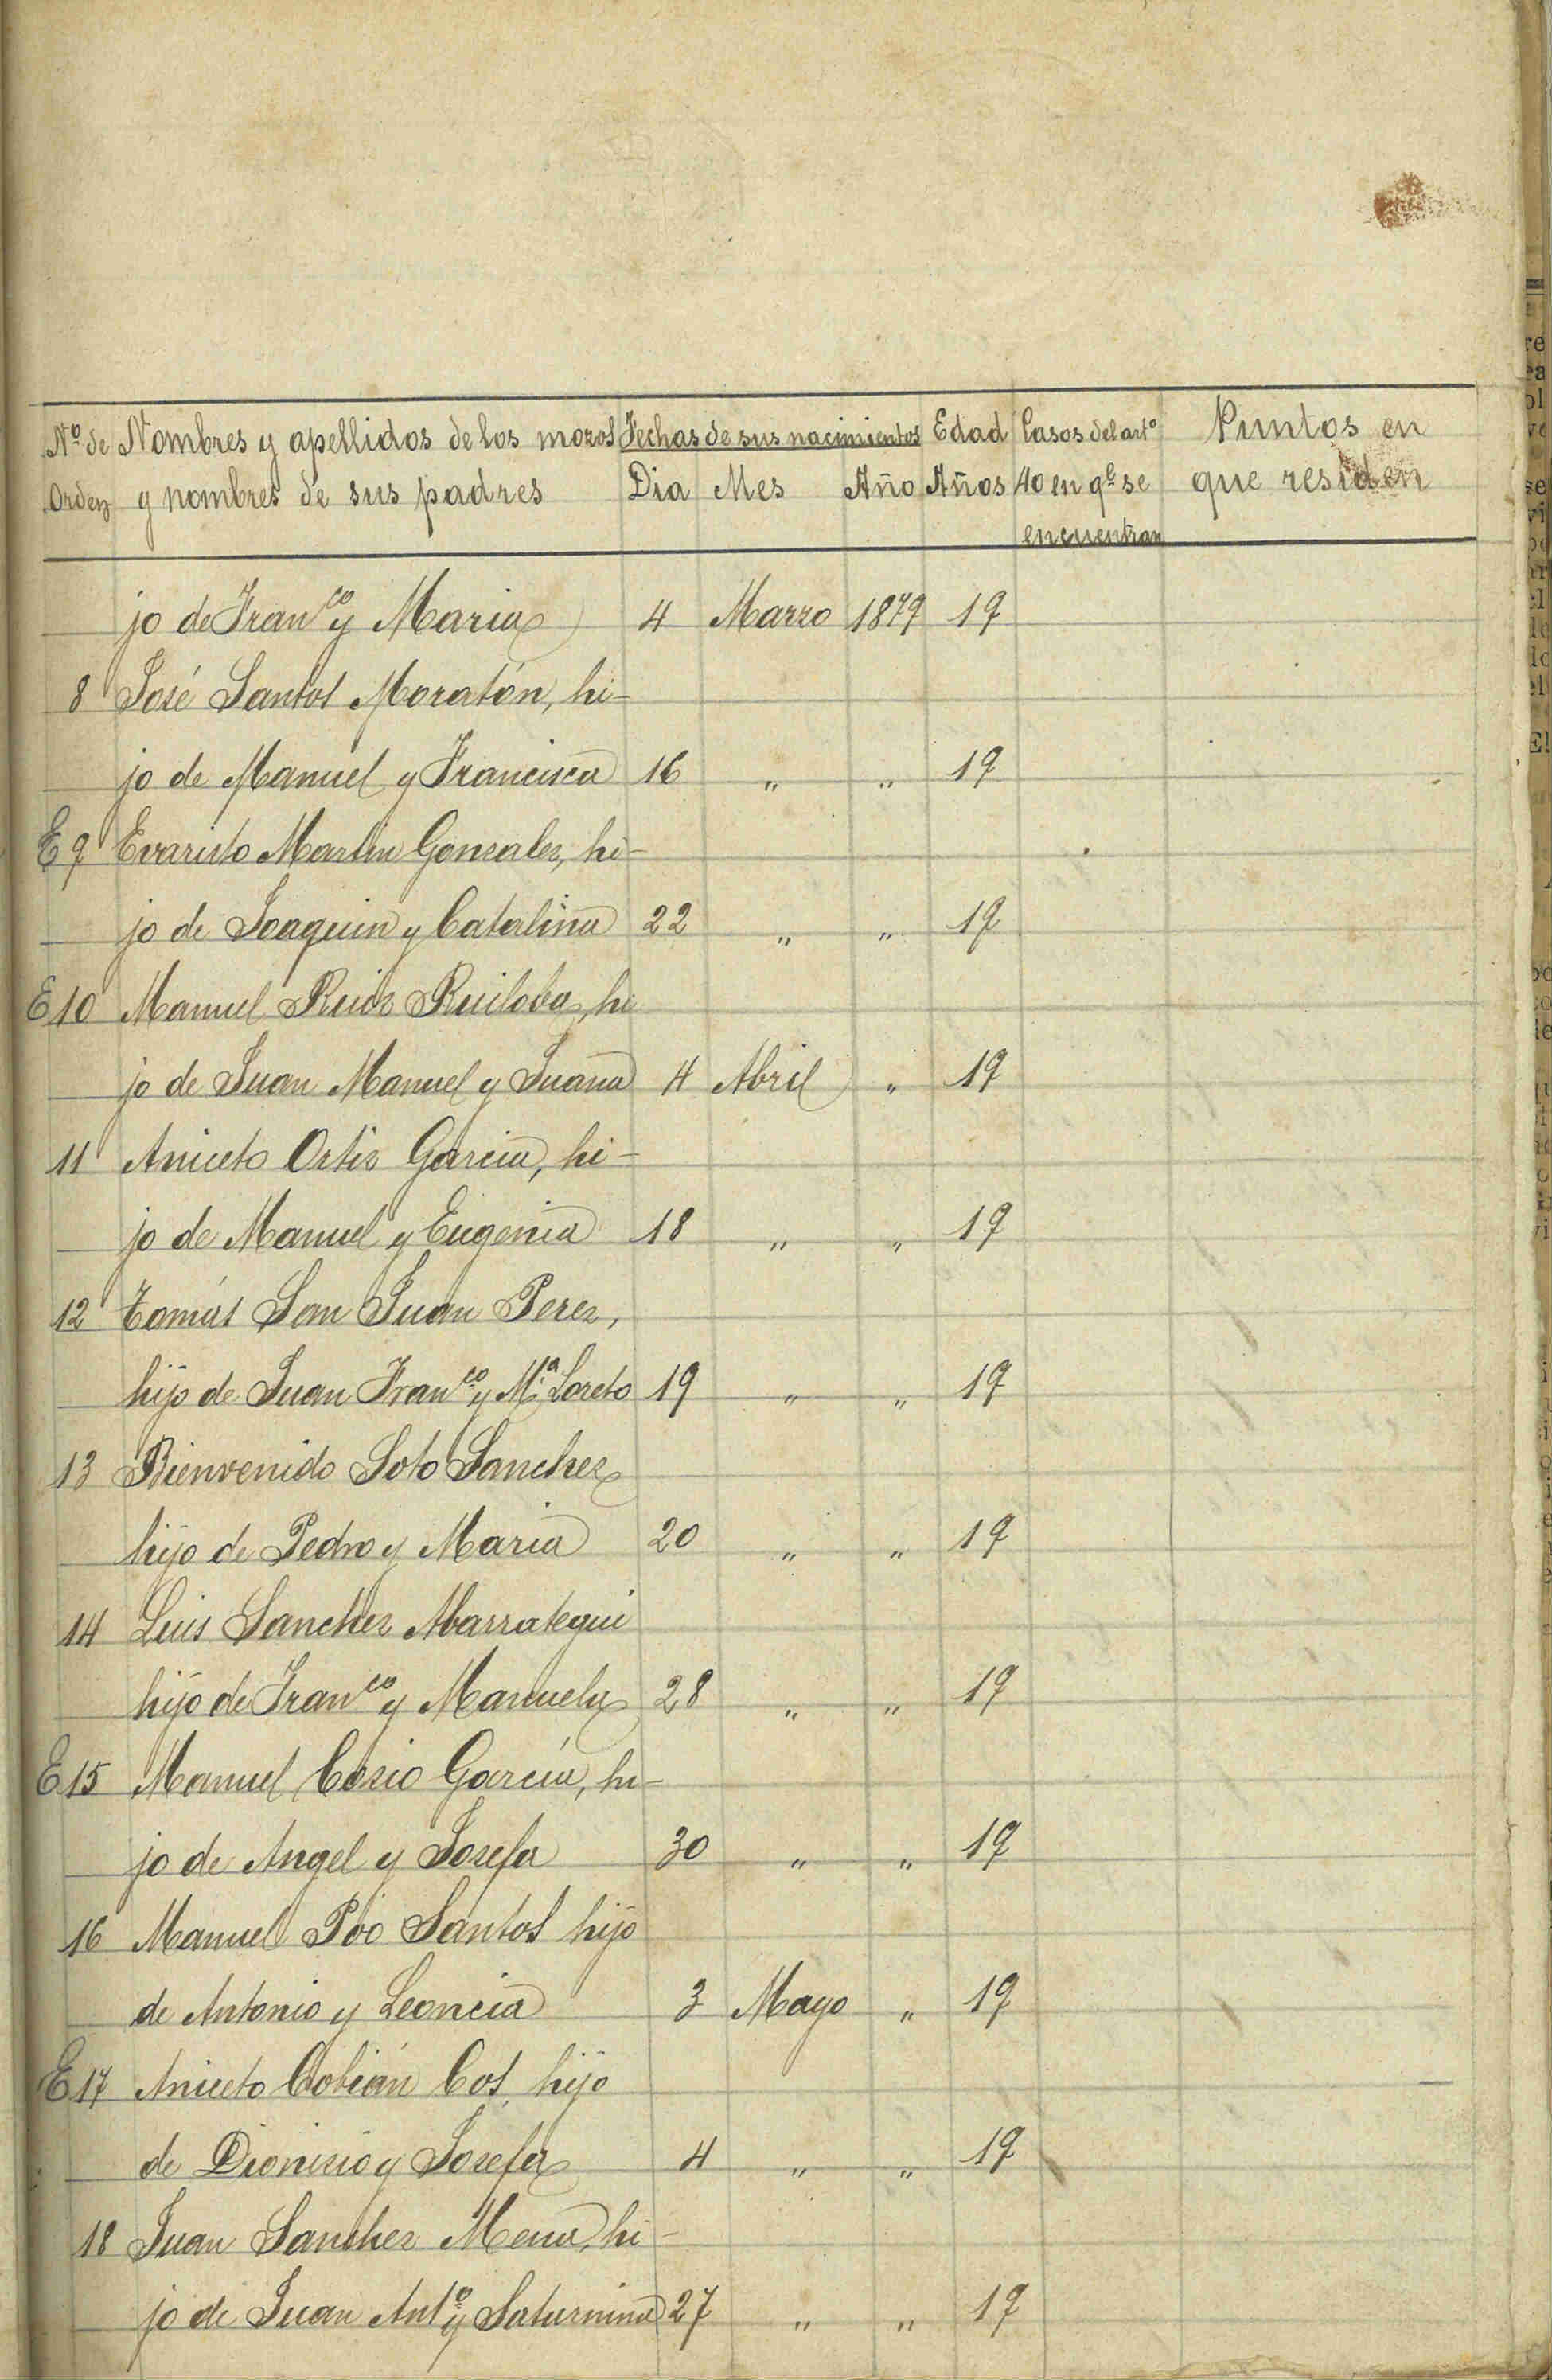 Nº de Nombres y apellidos de los mozos Fechas de sus nacimientos Edad Casos del artº Puntos en
Orden y nombres de sus padres Dia Mes Año Años 40 en qe se que residen
encuentran
jo de Franco y Maria 4 Marzo 1879 19
8 José Santos Moratón, hi-
jo de Manuel y Francisca 16 " " 19
E 9 Evaristo Martin Gonzalez, hi-
jo de Joaquin y Catalina 22 " " 19
E 10 Manuel Ruiz Ruiloba, hi
jo de Juan Manuel y Juana 4 Abril " 19
11 Aniceto Ortiz Garcia, hi-
jo de Manuel y Eugenia 18 " " 19
12 Tomás San Juan Perez,
hijo de Juan Franco y Mª Loreto 19 " " 19
13 Bienvenido Soto Sanchez
hijo de Pedro y Maria 20 " " 19
14 Luis Sanchez Abarrategui
hijo de Franco y Manuela 28 " " 19
E 15 Manuel Cosio García, hi-
jo de Angel y Josefa 30 " " 19
16 Manuel Poo Santos hijo
de Antonio y Leoncia 3 Mayo " 19
E 17 Aniceto Cobián Cos, hijo
de Dionisio y Josefa 4 " " 19
18 Juan Sanchez Mena, hi-
jo de Juan Antº y Saturnina 27 " " 19